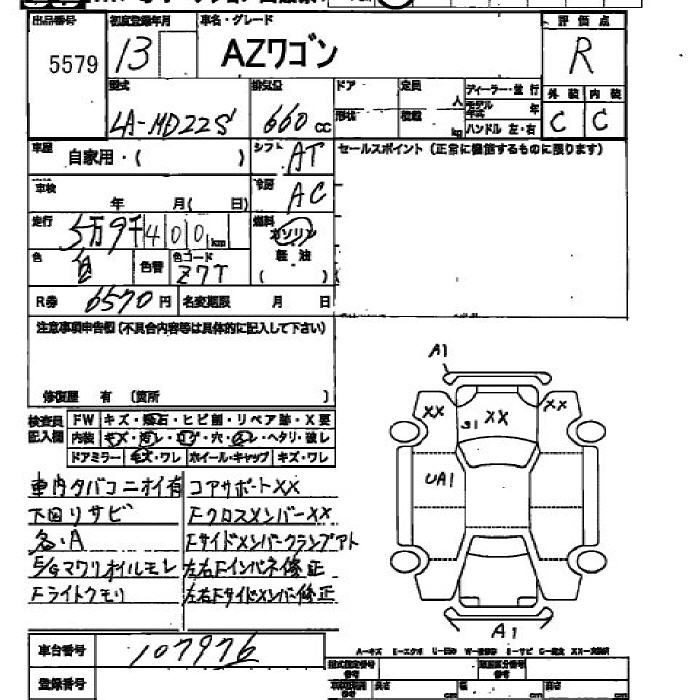 出品番号 初度登録年月 車名・グレード 評価点
5579 13 AZワゴン R
型式 排気量 ドア 定員 人 ディーラー・並行 外装 内装
LA-MD22S 660 cc 形状 積載 kg モデル年式 年 C C
ハンドル 左・右
車歴 自家用・( ) シフト AT セールスポイント(正常に機能するものに限ります)
車検 年 月( 日) 冷房 AC
走行 5万9千400km 燃料 ガソリン
色 色替 色コード Z7T 軽油
( )
R券 6570円 名変期限 月 日
注意事項申告欄(不具合内容等は具体的に記入して下さい)
修復歴 有 (箇所 )
A1
XX XX XX
S1
UA1
A1
検査員記入欄 FW キズ・飛石・ヒビ割・リペア跡・X要
内装 キズ・汚レ・コゲ・穴・・ヘタリ・破レ
ドアミラー キズ・ワレ ホイール・キャップ キズ・ワレ
車内タバコニオイ有 コアサポートXX
下回リサビ FクロスメンバーXX
各・A Fサイドメンバークランプアト
E/Gマワリオイルモレ 左右Fインパネ修正
Fライトクモリ 左右Fサイドメンバー修正
車台番号 107976
登録番号
A-キズ E-エクボ
長さ cm 幅 cm 高さ cm